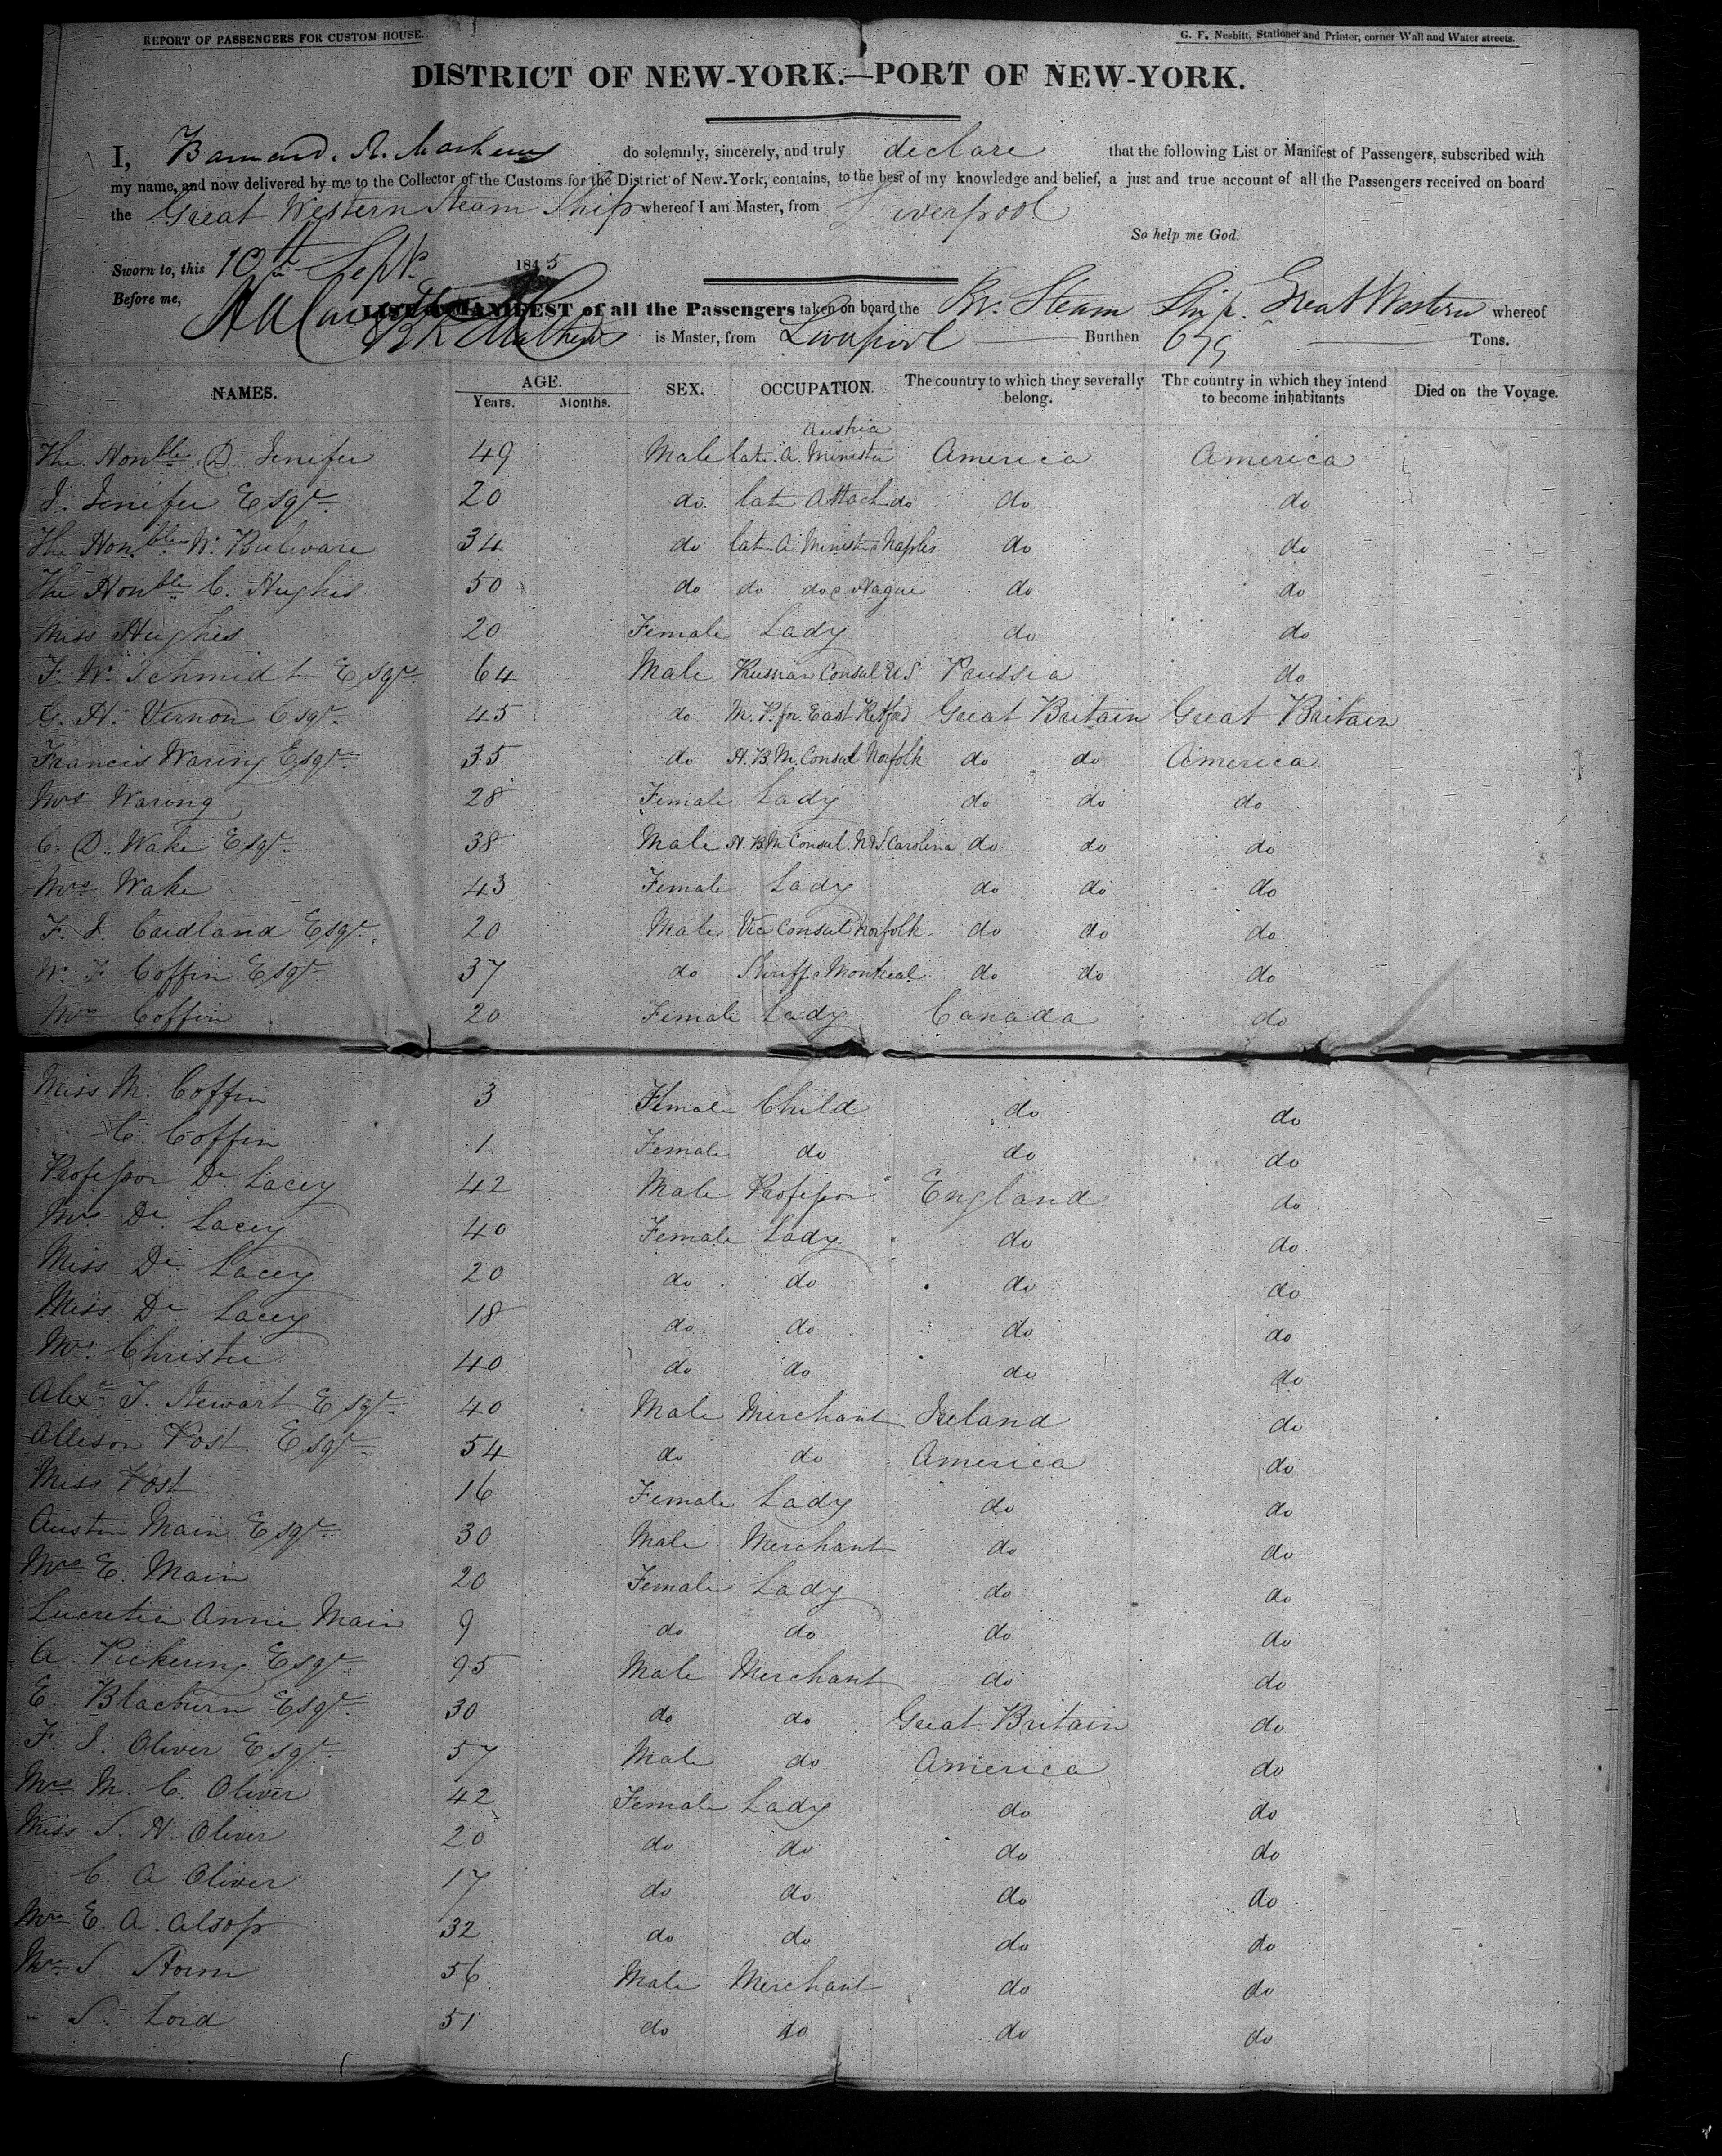 REPORT OF PASSENGERS FOR CUSTOM HOUSE.
G. F. Nesbitt, Stationer and Printer, corner Wall and Water streets.
DISTRICT OF NEW-YORK.—PORT OF NEW-YORK.
I, Barnard. R. Mathews do solemnly, sincerely, and truly declare that the following List or Manifest of Passengers, subscribed with
my name, and now delivered by me to the Collector of the Customs for the District of New-York, contains, to the best of my knowledge and belief, a just and true account of all the Passengers received on board
the Great Western Steam Ship whereof I am Master, from Liverpool
So help me God.
Sworn to, this 10th Sept. 1845
Before me,
LIST OR MANIFEST of all the Passengers taken on board the Br. Steam Ship. Great Western whereof
B R Mathews is Master, from Liverpool Burthen 679 Tons.
NAMES. AGE. SEX. OCCUPATION. The country to which they severally belong. The country in which they intend to become inhabitants Died on the Voyage.
Years. Months.
Austria
The Honble D Jenifer 49 Male late A. Minister America America
J. Jenifer Esqr. 20 do. late Attach do do do
The Honble W. Bulware 34 do late A Minister Naples do do
The Honble C. Hughes 50 do do do Hague do do
Miss Hughes 20 Female Lady do do
F. W. Schmidt Esqr. 64 Male Prussian Consul US Prussia do
G. H. Vernon Esqr. 45 do M. P. for East Retford Great Britain Great Britain
Francis Waring Esqr. 35 do H. B. M. Consul Norfolk do do America
Mrs Waring 28 Female Lady do do do
C. D. Wake Esqr. 38 Male H. B M Consul N & S. Carolina do do do
Mrs Wake 43 Female Lady do do do
F. J. Cridland Esqr. 20 Male Vice Consul Norfolk do do do
W. F Coffin Esqr. 37 do Sheriff Montreal do do do
Mrs Coffin 20 Female Lady Canada do
Miss M. Coffin 3 Female Child do do
C. Coffin 1 Female do do do
Professor De Lacey 42 Male Professor England do
Mrs De Lacey 40 Female Lady do do
Miss De Lacey 20 do do do do
Miss De Lacey 18 do do do do
Mrs Christie 40 do do do do
Alexr T. Stewart Esqr. 40 Male Merchant Ireland do
Allison Post Esqr 54 do do America do
Miss Post 16 Female Lady do do
Austin Main Esqr. 30 Male Merchant do do
Mrs E. Main 20 Female Lady do do
Lucretia Annie Main 9 do do do do
A. Pickering Esqr. 95 Male Merchant do do
E. Blacburn Esqr. 30 do do Great Britain do
F. J. Oliver Esqr. 57 Male do America do
Mrs M. C. Oliver 42 Female Lady do do
Miss S. H. Oliver 20 do do do do
C. A Oliver 17 do do do do
Mrs E. A. Alsop 32 do do do do
Mr S. Storm 56 Male Merchant do do
" S. Lord 51 do do do do